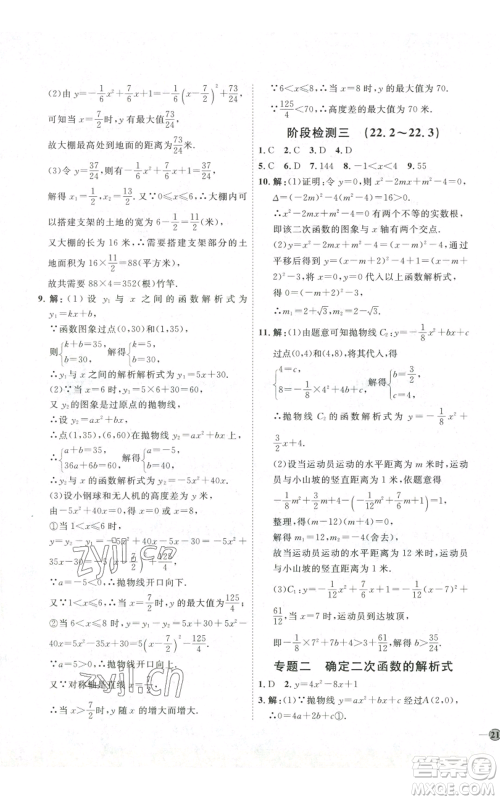 (2)由 y=-1/6x²+7/6x+1=-1/6(x-7/2)²+73/24
可知,当 x=7/2 时,y 有最大值73/24.
故大棚最高处到地面的距离为73/24米.
(3)令 y=37/24,则有-1/6x²+7/6x+1=37/24,
解得 x₁=1/2,x₂=13/2.又∵0≤x≤6,∴大棚内可
以搭建支架的土地的宽为 6-1/2=11/2(米).
又大棚的长为 16 米,∴需要搭建支架部分的土
地面积为 16×11/2=88(平方米).
故共需要 88×4=352(根)竹竿.
9. 解:(1)设 y₁ 与 x 之间的函数解析式为
y₁=kx+b,
∵函数图象过点(0,30)和(1,35),
则{k+b=35, b=30, 解得{k=5, b=30.
∴y₁ 与 x 之间的解析式为 y₁=5x+30.
(2)∵当 x=6 时,y₁=5×6+30=60,
又 y₂ 的图象是过原点的抛物线,
∴设 y₂=ax²+bx.
∴点(1,35),(6,60)在抛物线 y₂=ax²+bx 上.
∴{a+b=35, 36a+6b=60, 解得{a=-5, b=40.
∴y₂ 与 x 的函数解析式为 y₂=-5x²+40x.
(3)设小钢球和无人机的高度差为 y 米,
由-5x²+40x=0,得 x₁=0,x₂=8.
①当 1<x≤6 时,y=y₂-y₁=-5x²+40x-
5x-30=-5x²+35x-30=-5(x-7/2)²+125/4.
又∵a=-5<0,∴抛物线开口向下.
又∵1<x≤6,∴当 x=7/2 时,y 的最大值为125/4;
②当 6<x≤8 时,y=y₁-y₂=5x+30+5x²-
40x=5x²-35x+30=5(x-7/2)²-125/4.
又∵a=5>0,∴抛物线开口向上.
又∵对称轴是直线 x=7/2,
∴当 x>7/2 时,y 随 x 的增大而增大.
∵6<x≤8,∴当 x=8 时,y 的最大值为 70.
∵125/4<70,∴高度差的最大值为 70 米.
阶段检测三 (22.2～22.3)
1. C 2. C 3. D 4. D
5. C 6. D 7. 144 8. -1<x<4 9. 55
10. 解:(1)证明:令 x²-2mx+m²-4=0,
Δ=(-2m)²-4(m²-4)=16>0,
∴方程有两个不相等的实数根,
即该二次函数的图象与 x 轴有两个交点.
(2)y=x²-2mx+m²-4=(x-m)²-4,
平移后的解析式为 y=(x-m)²-1,
将(2,0)代入,得 0=(2-m)²-1,
解得 m₁=1,m₂=3.
11. 解:(1)由题意可知抛物线 C₂:y=-1/8x²+bx+c
过点(0,4)和(4,8),将其代入,得
{4=c, 8=-1/8×4²+4b+c, 解得{b=3/2, c=4.
∴抛物线 C₂ 的函数解析式为 y=-1/8x²+
3/2x+4.
(2)设当运动员运动的水平距离为 m 米时,运
动员与小山坡的竖直距离为 1 米,依题意,得
-1/8m²+3/2m+4-(-1/12m²+7/6m+1)=1,
整理,得(m-12)(m+4)=0,
解得 m₁=12,m₂=-4(舍去).
故当运动员运动的水平距离为 12 米时,运动
员与小山坡的竖直距离为 1 米.
(3)C₁:y=-1/12x²+7/6x+1=-1/12(x-7)²+
61/12,当 x=7 时,运动员到达坡顶,
即-1/8×7²+7b+4>3+61/12,解得 b>35/24.
专题二 确定二次函数的解析式
1. D 2. y=4x²-8x+1
3. 解:(1)∵抛物线 y=ax²+bx+c 经过A(2,0),
∴0=4a+2b+c①.
21
zyjl.cn